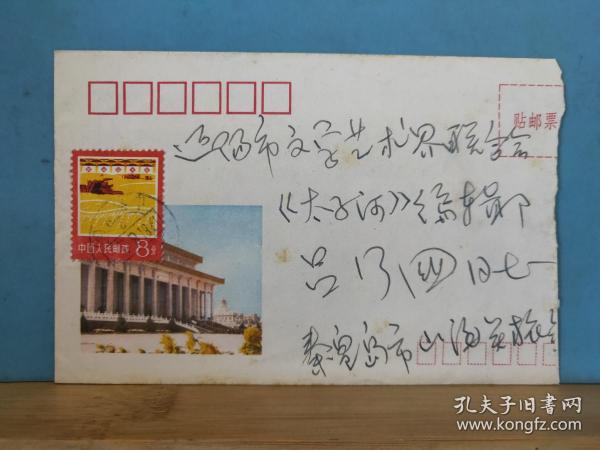 贴邮票
辽阳市文学艺术界联合会
《太子河》编辑部
中国人民邮政 8分
吕 同志
秦皇岛市山海关
孔夫子旧书网
www.kongfz.com